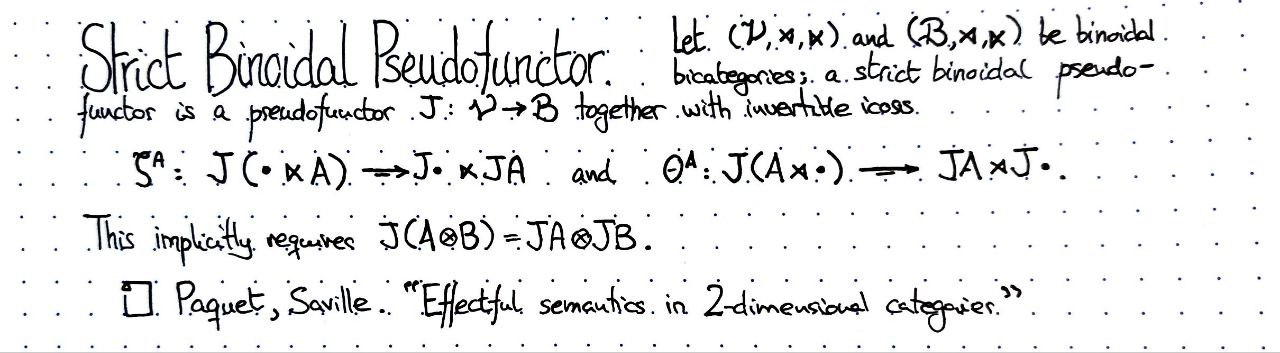 Strict Binoidal Pseudofunctor. Let (𝒱, ⋊, ⋉) and (ℬ, ⋊, ⋉) be binoidal
bicategories; a strict binoidal pseudo-
functor is a pseudofunctor J: 𝒱 → B together with invertible icons.
ζᴬ: J(• ⋉ A) ⟶ J• ⋉ JA and θᴬ: J(A ⋊ •) ⟶ JA ⋊ J•.
This implicitly requires J(A⊗B) = JA⊗JB.
□ Paquet, Saville. "Effectful semantics in 2-dimensional categories."